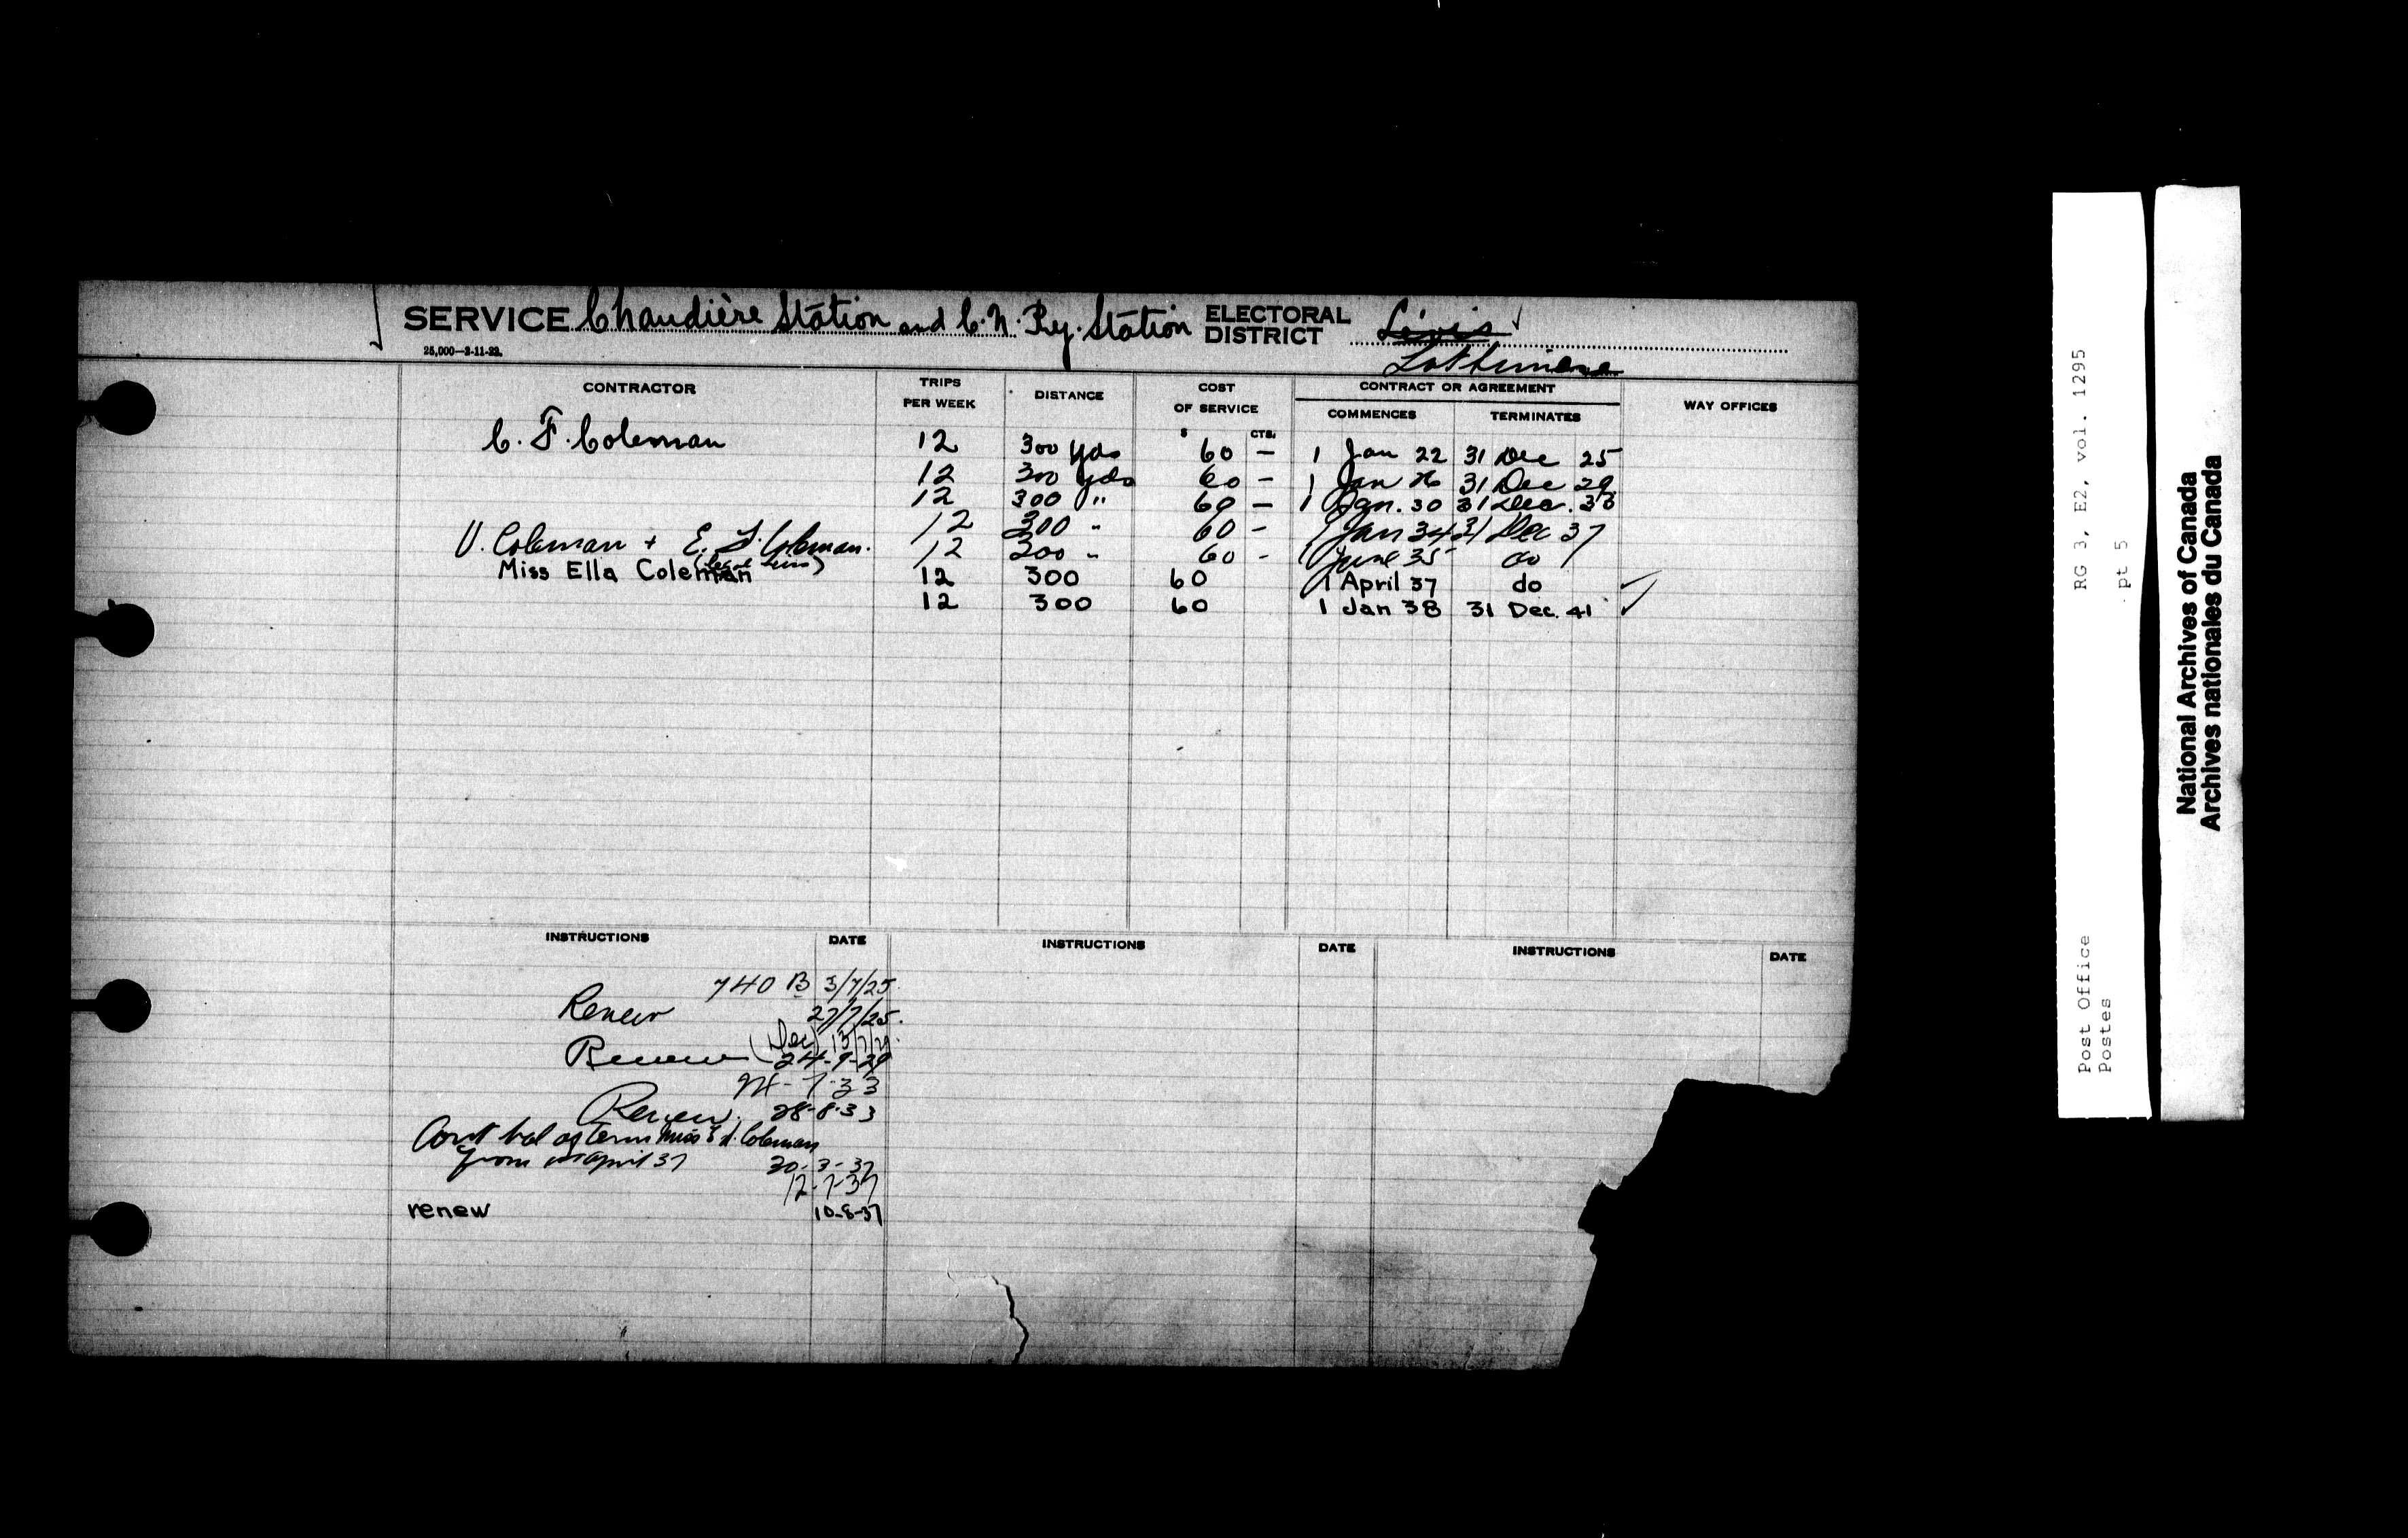 SERVICE Chaudière Station and C. N. Ry. Station ELECTORAL DISTRICT Lévis
Lotbiniere
25,000—2-11-22.
CONTRACTOR TRIPS PER WEEK DISTANCE COST OF SERVICE CONTRACT OR AGREEMENT WAY OFFICES
COMMENCES TERMINATES
$ CTS.
C. F. Coleman 12 300 yds 60 — 1 Jan 22 31 Dec 25
12 300 yds 60 — 1 Jan 26 31 Dec 29
12 300 " 60 — 1 Jan. 30 31 Dec. 33
12 300 " 60 — 1 Jan 34 31 Dec 37
V. Coleman + E. F. Coleman. 12 300 " 60 — 1 June 35 do
Miss Ella Coleman 12 300 60 1 April 37 do
12 300 60 1 Jan 38 31 Dec. 41
INSTRUCTIONS DATE INSTRUCTIONS DATE INSTRUCTIONS DATE
740 B 3/7/25.
Renew 27/7/25.
(Dec)
Renew 24-9-29
24-7-33
Renew. 28-8-33
Cont bal of term Miss E. F. Coleman
from 1st april 37 20-3-37
12-7-37
renew 10-8-37
RG 3, E2, vol. 1295
pt 5
Post Office
Postes
National Archives of Canada
Archives nationales du Canada